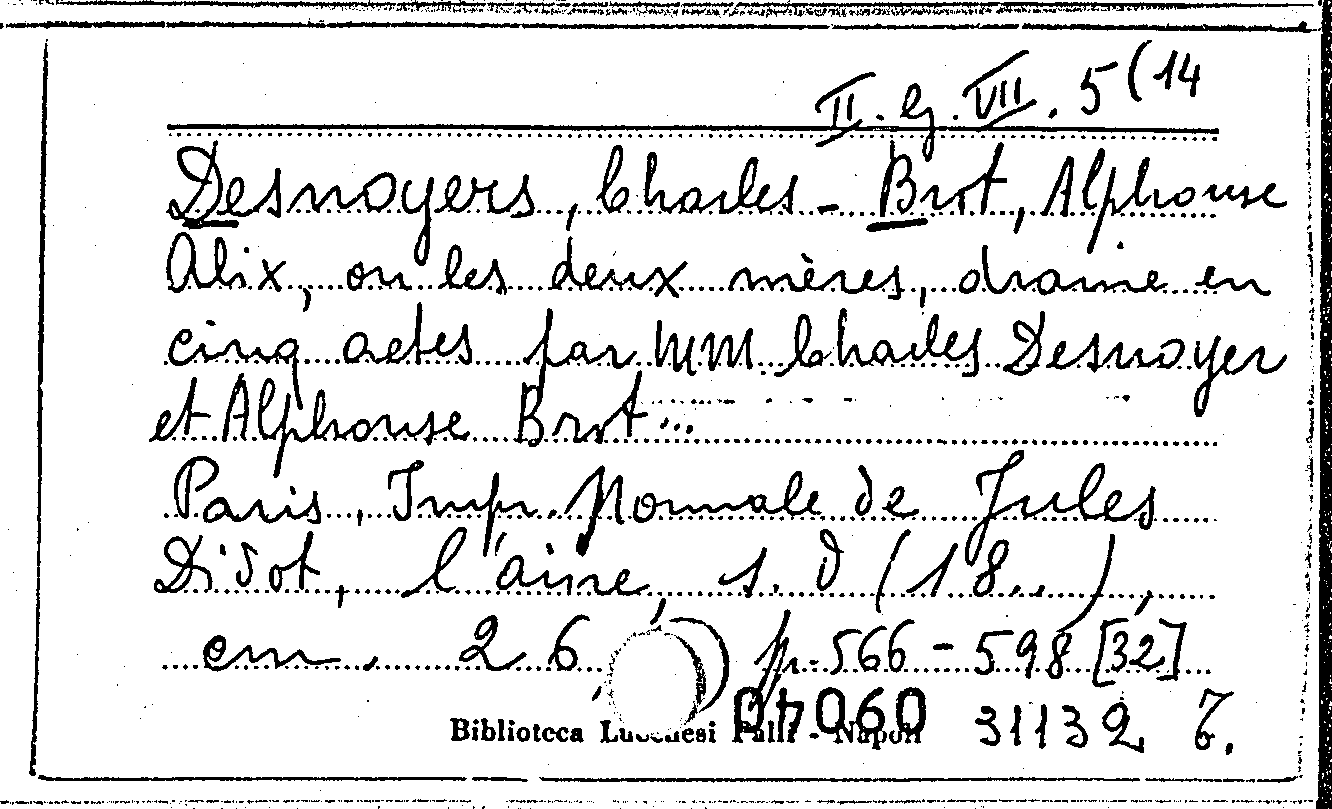 II. G. VII. 5 (14
Desnoyers, Charles - Brot, Alphonse
Alix, ou les deux mères, drame en
cinq actes par MM Charles Desnoyer
et Alphonse Brot...
Paris, Impr. Normale de Jules
Didot, l'aine, s. d (18..),
cm. 26, p. 566-598 [32]
04060 31132 T.
Biblioteca Lucchesi Palli - Napoli